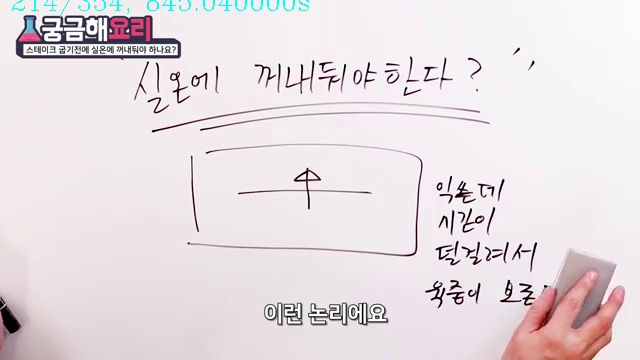 214/354, 845.040000s
궁금해요리
스테이크 굽기전에 실온에 꺼내둬야 하나요?
실온에 꺼내둬야한다?
익는데
시간이
덜걸려서
육즙이 보존
이런 논리에요